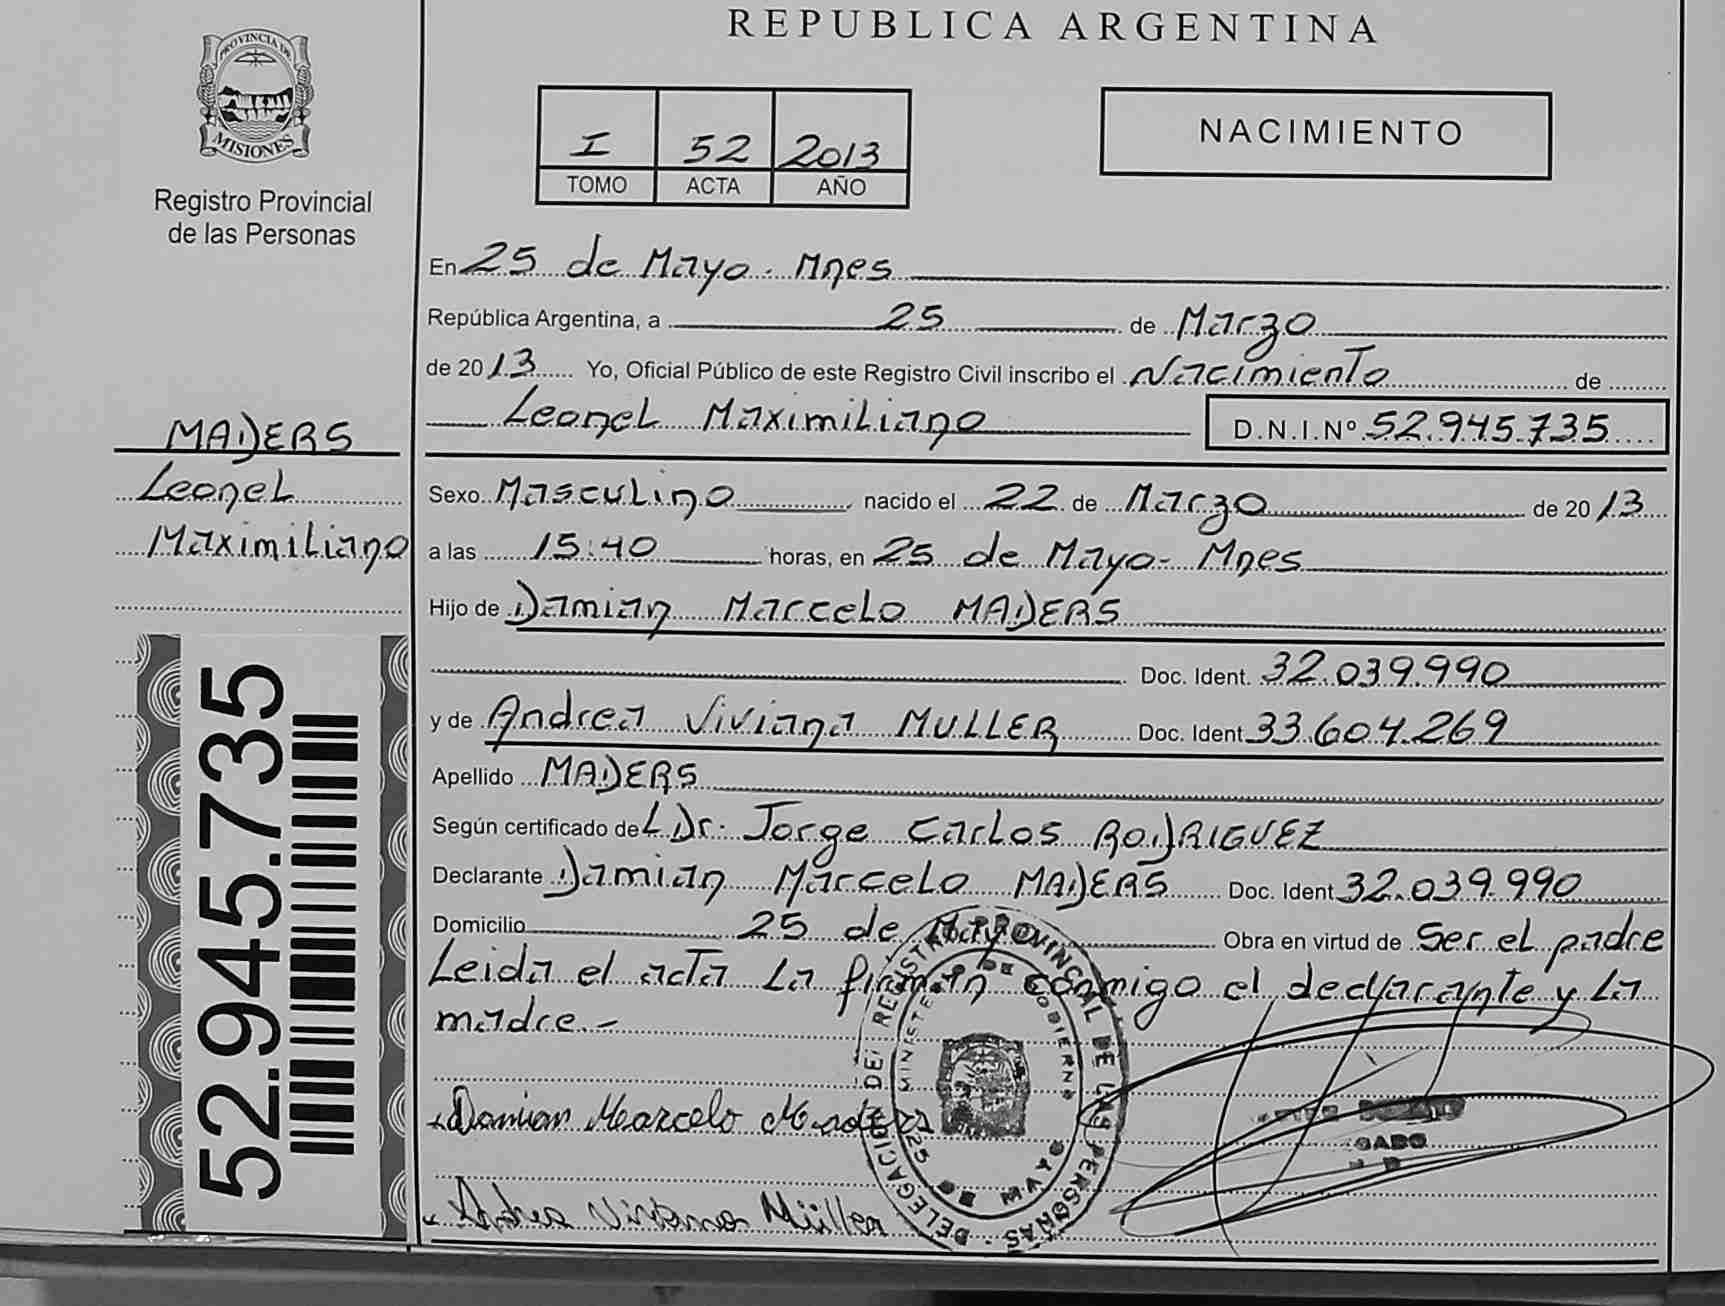 REPUBLICA ARGENTINA
PROVINCIA DE
MISIONES
Registro Provincial
de las Personas
I 52 2013
TOMO ACTA AÑO
NACIMIENTO
En 25 de Mayo - Mnes
República Argentina, a 25 de Marzo
de 2013 Yo, Oficial Público de este Registro Civil inscribo el Nacimiento de
Leonel Maximiliano D.N.I.Nº 52.945.735
MADERS
Leonel
Maximiliano
Sexo Masculino nacido el 22 de Marzo de 2013
a las 15:40 horas, en 25 de Mayo - Mnes
Hijo de Damian Marcelo MADERS
Doc. Ident. 32.039.990
y de Andrea Viviana MULLER Doc. Ident 33.604.269
Apellido MADERS
Según certificado de L Dr. Jorge Carlos RODRIGUEZ
Declarante Damian Marcelo MADERS Doc. Ident 32.039.990
Domicilio 25 de Mayo Obra en virtud de Ser el padre
Leida el acta La firman conmigo el declarante y La
madre.-
52.945.735
Damian Marcelo Maders
Andrea Viviana Müller
DELEGACION DEL REGISTRO PROVINCIAL DE LAS PERSONAS
25 DE MAYO